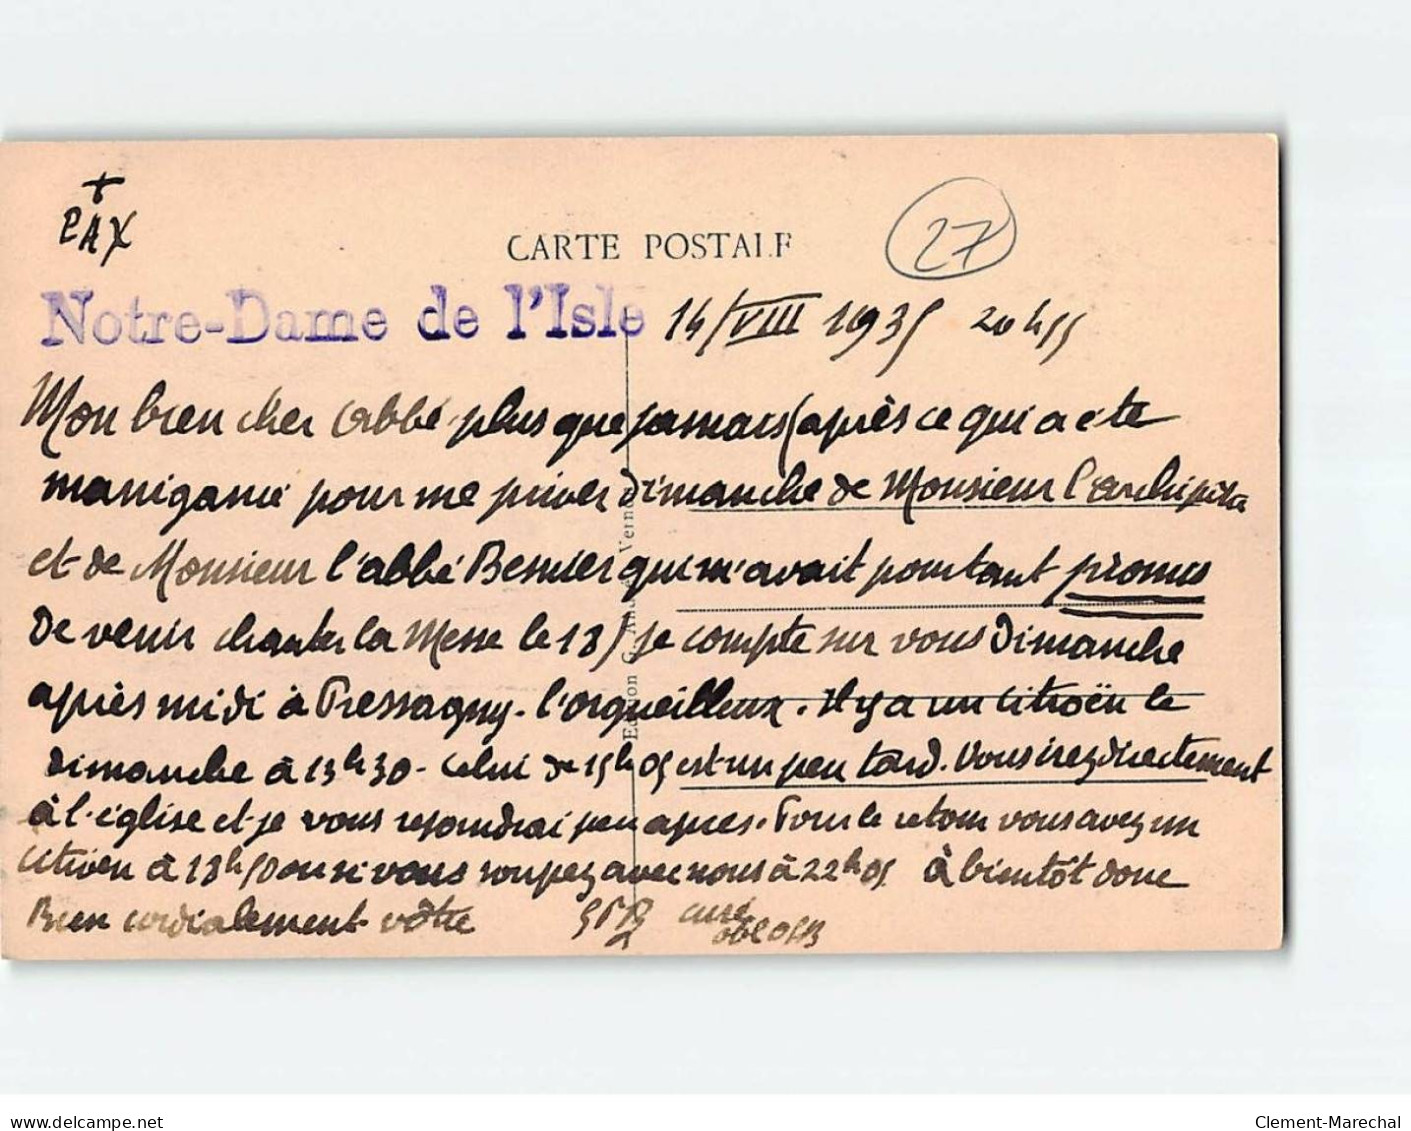 +
PAX
CARTE POSTALE
27
Notre-Dame de l'Isle 14/VIII 1935 20h55
Mon bien cher abbé, plus que jamais (après ce qui a été
manigancé pour me priver dimanche de Monsieur l'Archiprêtre
et de Monsieur l'abbé qui m'avait pourtant promis
de venir chanter la Messe le 18) je compte sur vous Dimanche
après midi à Pressagny-l'orgueilleux. Il y a un citroën le
dimanche à 13h30 - Celui de 15h05 est un peu tard. Vous irez directement
à l'église et je vous rejoindrai peu après. Pour le retour vous avez un
citroën à 18h50 ou si vous soupez avec nous à 22h05 à bientôt donc
Bien cordialement vôtre curé
obl OSB
Edition Vernon
delcampe.net
Clement-Marechal